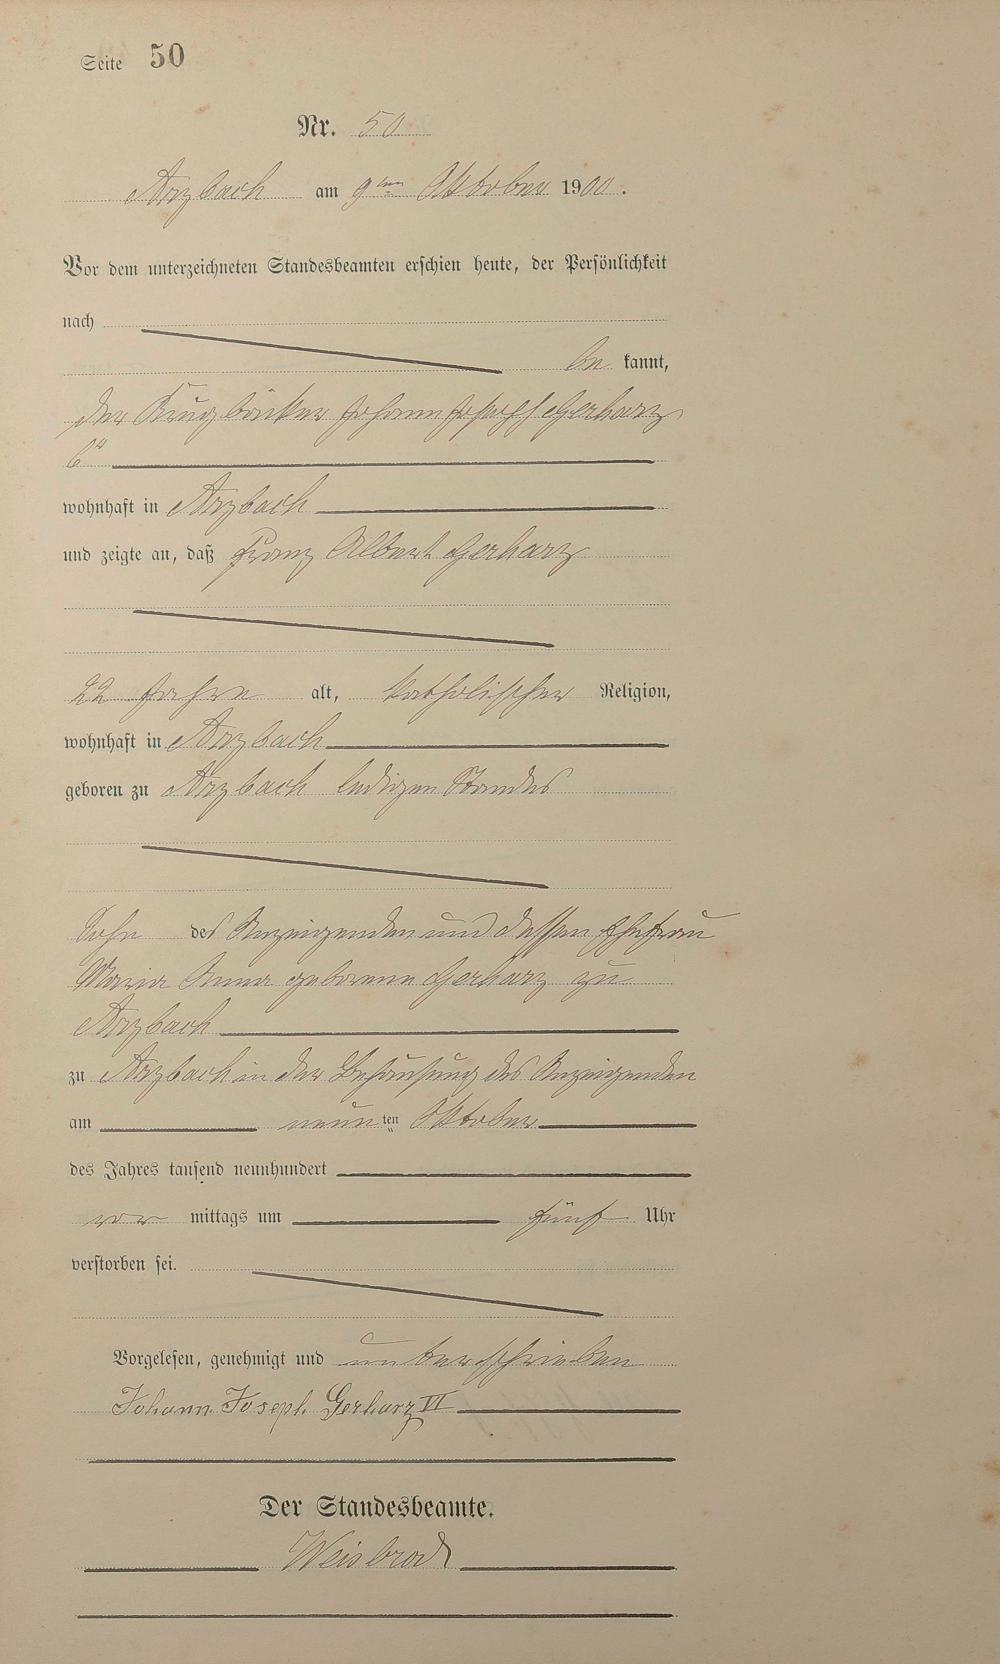 Seite 50
Nr. 50
Arzbach am 9ten Oktober 1900.
Vor dem unterzeichneten Standesbeamten erschien heute, der Persönlichkeit
nach
be kannt,
der Krugbäcker Johann Joseph Gerharz
6te
wohnhaft in Arzbach
und zeigte an, daß Franz Albert Gerharz
22 Jahre alt, katholischer Religion,
wohnhaft in Arzbach
geboren zu Arzbach ledigen Standes
Sohn des Anzeigenden und dessen Ehefrau
Maria Anna geborene Gerharz zu
Arzbach
zu Arzbach in der Behausung des Anzeigenden
am neunten Oktober
des Jahres tausend neunhundert
vor mittags um fünf Uhr
verstorben sei.
Vorgelesen, genehmigt und unterschrieben
Johann Joseph Gerharz VI
Der Standesbeamte.
Weisbrod